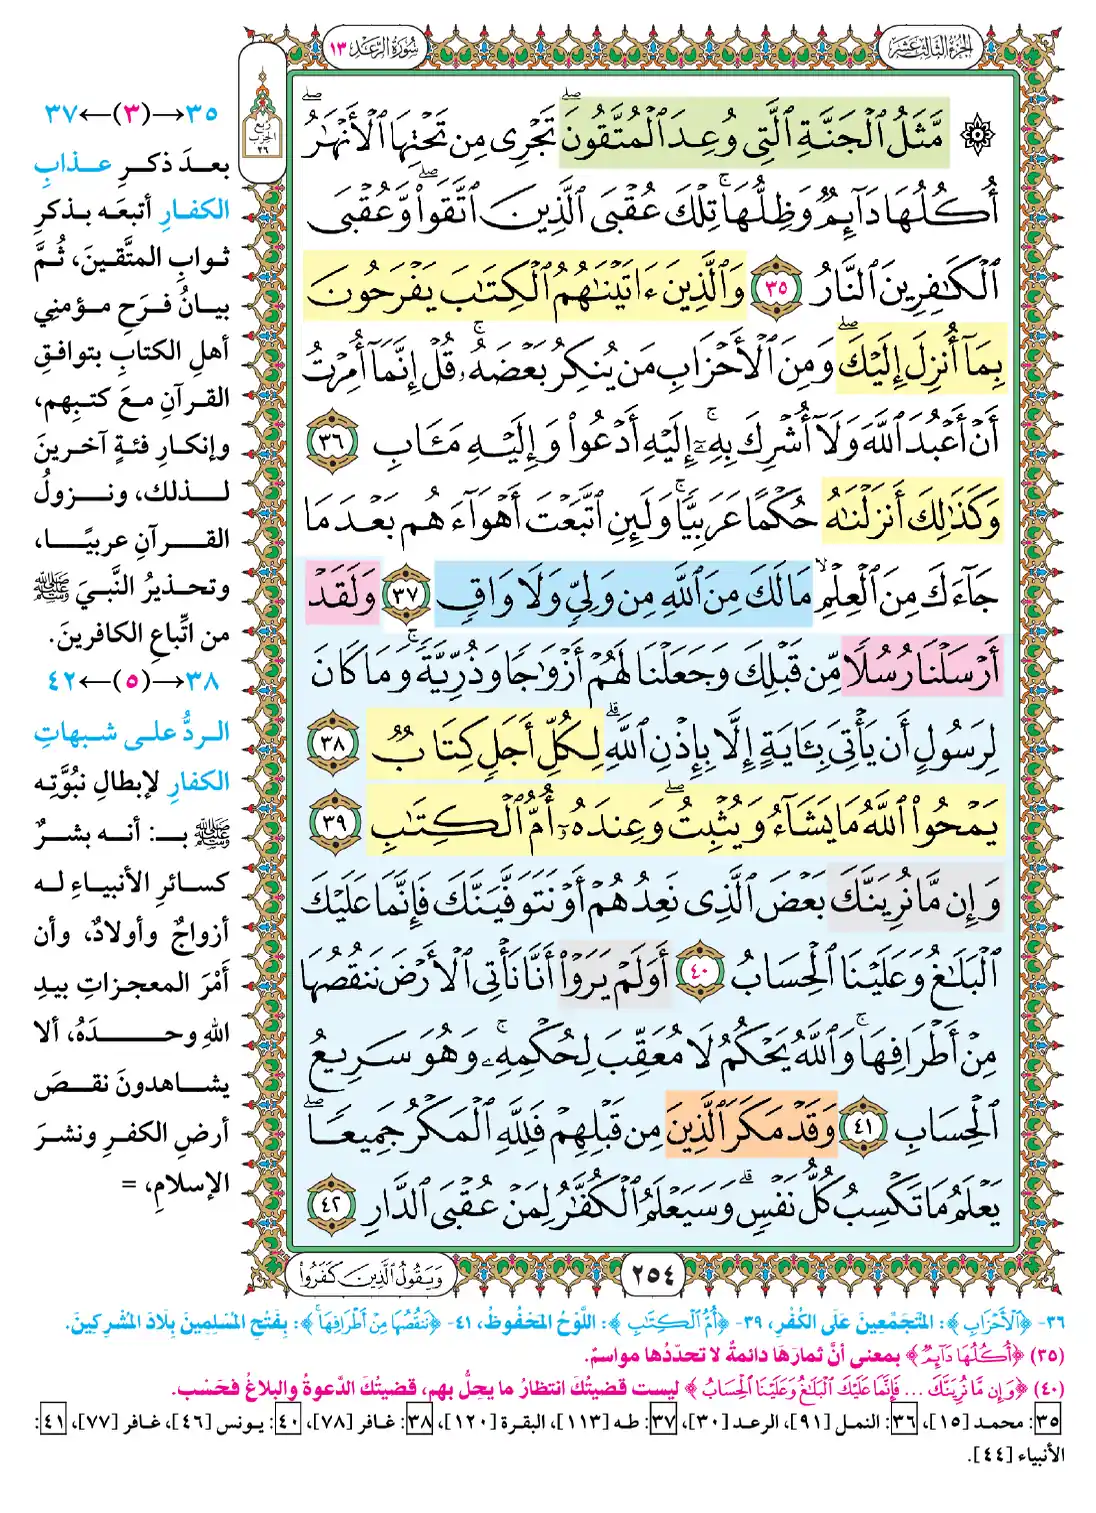 الجزء الثالث عشر
سورة الرعد ١٣
ربع الحزب ٢٦
۞ مَّثَلُ ٱلْجَنَّةِ ٱلَّتِى وُعِدَ ٱلْمُتَّقُونَ ۖ تَجْرِى مِن تَحْتِهَا ٱلْأَنْهَٰرُ ۖ
أُكُلُهَا دَآئِمٌ وَظِلُّهَا ۚ تِلْكَ عُقْبَى ٱلَّذِينَ ٱتَّقَوا۟ ۖ وَّعُقْبَى
ٱلْكَٰفِرِينَ ٱلنَّارُ ٣٥ وَٱلَّذِينَ ءَاتَيْنَٰهُمُ ٱلْكِتَٰبَ يَفْرَحُونَ
بِمَآ أُنزِلَ إِلَيْكَ ۖ وَمِنَ ٱلْأَحْزَابِ مَن يُنكِرُ بَعْضَهُۥ ۚ قُلْ إِنَّمَآ أُمِرْتُ
أَنْ أَعْبُدَ ٱللَّهَ وَلَآ أُشْرِكَ بِهِۦٓ ۚ إِلَيْهِ أَدْعُوا۟ وَإِلَيْهِ مَـَٔابِ ٣٦
وَكَذَٰلِكَ أَنزَلْنَٰهُ حُكْمًا عَرَبِيًّا ۚ وَلَئِنِ ٱتَّبَعْتَ أَهْوَآءَهُم بَعْدَ مَا
جَآءَكَ مِنَ ٱلْعِلْمِ ۙ مَا لَكَ مِنَ ٱللَّهِ مِن وَلِىٍّ وَلَا وَاقٍ ٣٧ وَلَقَدْ
أَرْسَلْنَا رُسُلًا مِّن قَبْلِكَ وَجَعَلْنَا لَهُمْ أَزْوَٰجًا وَذُرِّيَّةً ۚ وَمَا كَانَ
لِرَسُولٍ أَن يَأْتِىَ بِـَٔايَةٍ إِلَّا بِإِذْنِ ٱللَّهِ ۗ لِكُلِّ أَجَلٍ كِتَابٌ ٣٨
يَمْحُوا۟ ٱللَّهُ مَا يَشَآءُ وَيُثْبِتُ ۖ وَعِندَهُۥٓ أُمُّ ٱلْكِتَٰبِ ٣٩
وَإِن مَّا نُرِيَنَّكَ بَعْضَ ٱلَّذِى نَعِدُهُمْ أَوْ نَتَوَفَّيَنَّكَ فَإِنَّمَا عَلَيْكَ
ٱلْبَلَٰغُ وَعَلَيْنَا ٱلْحِسَابُ ٤٠ أَوَلَمْ يَرَوْا۟ أَنَّا نَأْتِى ٱلْأَرْضَ نَنقُصُهَا
مِنْ أَطْرَافِهَا ۚ وَٱللَّهُ يَحْكُمُ لَا مُعَقِّبَ لِحُكْمِهِۦ ۚ وَهُوَ سَرِيعُ
ٱلْحِسَابِ ٤١ وَقَدْ مَكَرَ ٱلَّذِينَ مِن قَبْلِهِمْ فَلِلَّهِ ٱلْمَكْرُ جَمِيعًا ۖ
يَعْلَمُ مَا تَكْسِبُ كُلُّ نَفْسٍ ۗ وَسَيَعْلَمُ ٱلْكُفَّٰرُ لِمَنْ عُقْبَى ٱلدَّارِ ٤٢
٢٥٤
وَيَقُولُ ٱلَّذِينَ كَفَرُوا۟
٣٥→(٣)←٣٧
بعدَ ذكرِ عذابِ
الكفارِ أتبعَه بذكرِ
ثوابِ المتَّقينَ، ثُمَّ
بيانُ فرَحِ مؤمنِي
أهلِ الكتابِ بتوافقِ
القرآنِ معَ كتبِهم،
وإنكارِ فئةٍ آخرينَ
لذلك، ونزولُ
القرآنِ عربيًا،
وتحذيرُ النَّبيَ ﷺ
من اتِّباعِ الكافرينَ.
٣٨→(٥)←٤٢
الردُّ على شبهاتِ
الكفارِ لإبطالِ نبُوَّتِه
ﷺ بـ: أنه بشرٌ
كسائرِ الأنبياءِ له
أزواجٌ وأولادٌ، وأن
أَمْرَ المعجزاتِ بيدِ
اللهِ وحدَهُ، ألا
يشاهدونَ نقصَ
أرضِ الكفرِ ونشرَ
الإسلامِ، =
٣٦- ﴿ٱلْأَحْزَابِ﴾: المُتَجَمِّعِينَ عَلَى الكُفْرِ، ٣٩- ﴿أُمُّ ٱلْكِتَٰبِ﴾: اللَّوْحُ المَحْفُوظُ، ٤١- ﴿نَنقُصُهَا مِنْ أَطْرَافِهَا ۚ﴾: بِفَتْحِ المُسْلِمِينَ بِلَادَ المُشْرِكِينَ.
(٣٥) ﴿أُكُلُهَا دَآئِمٌ﴾ بمعنى أنَّ ثمارَهَا دائمةٌ لا تحدّدُها مواسمٌ.
(٤٠) ﴿وَإِن مَّا نُرِيَنَّكَ ... فَإِنَّمَا عَلَيْكَ ٱلْبَلَٰغُ وَعَلَيْنَا ٱلْحِسَابُ﴾ ليست قضيتُكَ انتظارُ ما يحلُّ بهم، قضيتُكَ الدَّعوةُ والبلاغُ فَحَسْب.
٣٥: محمد [١٥]، ٣٦: النمل [٩١]، الرعد [٣٠]، ٣٧: طه [١١٣]، البقرة [١٢٠]، ٣٨: غافر [٧٨]، ٤٠: يونس [٤٦]، غافر [٧٧]، ٤١:
الأنبياء [٤٤].